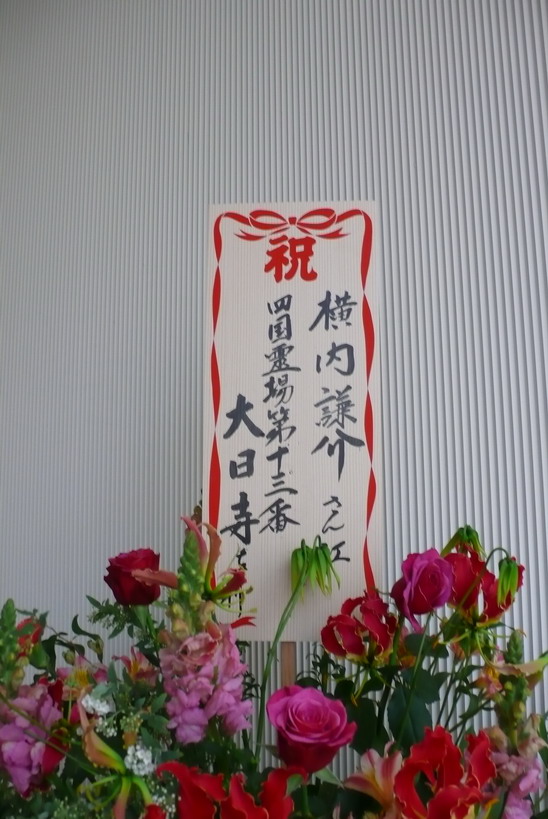 祝
横内謙介さん江
四国霊場第十三番
大日寺